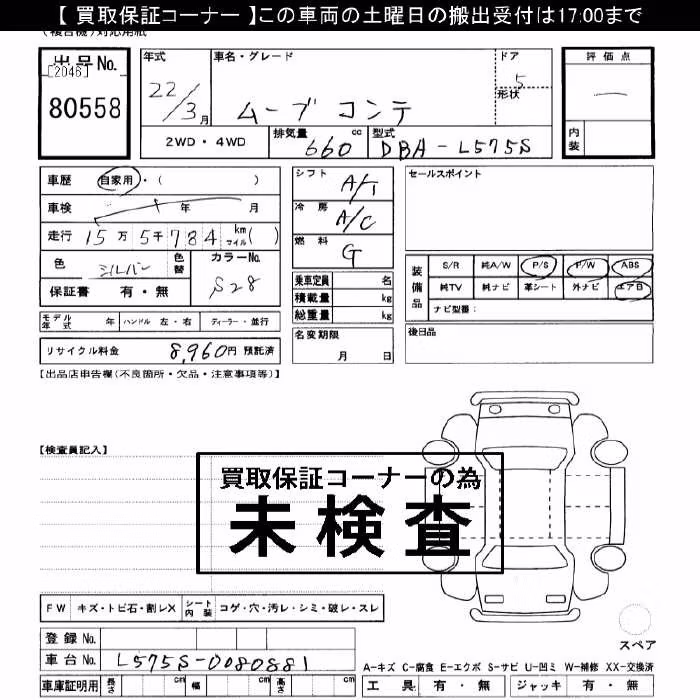 【 買取保証コーナー 】この車両の土曜日の搬出受付は17:00まで
出品No.
[2046]
80558
年式
22/3月
車名・グレード
ムーブ コンテ
ドア
5
形状
評価点
内装
2WD・4WD
排気量 660 cc
型式 DBA-L575S
車歴 自家用・( )
車検 年 月
走行 15万5千784 km マイル( )
色 シルバー 色替
カラーNo. S28
保証書 有・無
モデル年式 年 ハンドル 左・右 ディーラー・並行
リサイクル料金 8,960円 預託済
シフト A/T
冷房 A/C
燃料 G
乗車定員 名
積載量 kg
総重量 kg
名変期限
月 日
セールスポイント
装備品
S/R 純A/W P/S P/W ABS
純TV 純ナビ 革シート 外ナビ エアB
ナビ型番:
後日品
【出品店申告欄(不良箇所・欠品・注意事項等)】
【検査員記入】
買取保証コーナーの為
未検査
FW キズ・トビ石・割レX シート内装 コゲ・穴・汚レ・シミ・破レ・スレ
登録No.
車台No. L575S-0080881
車庫証明用 長さ cm 幅 cm 高さ cm
スペア
A-キズ C-腐食 E-エクボ S-サビ U-凹ミ W-補修 XX-交換済
工具 有・無 ジャッキ 有・無